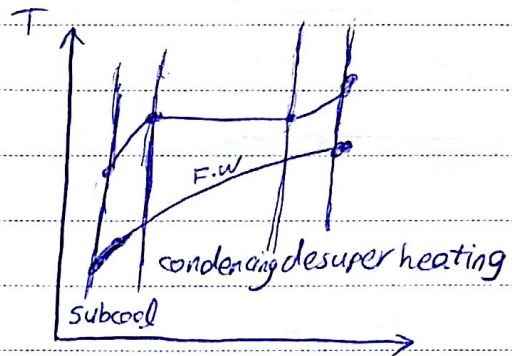 T
F.W
condencing desuper heating
subcool